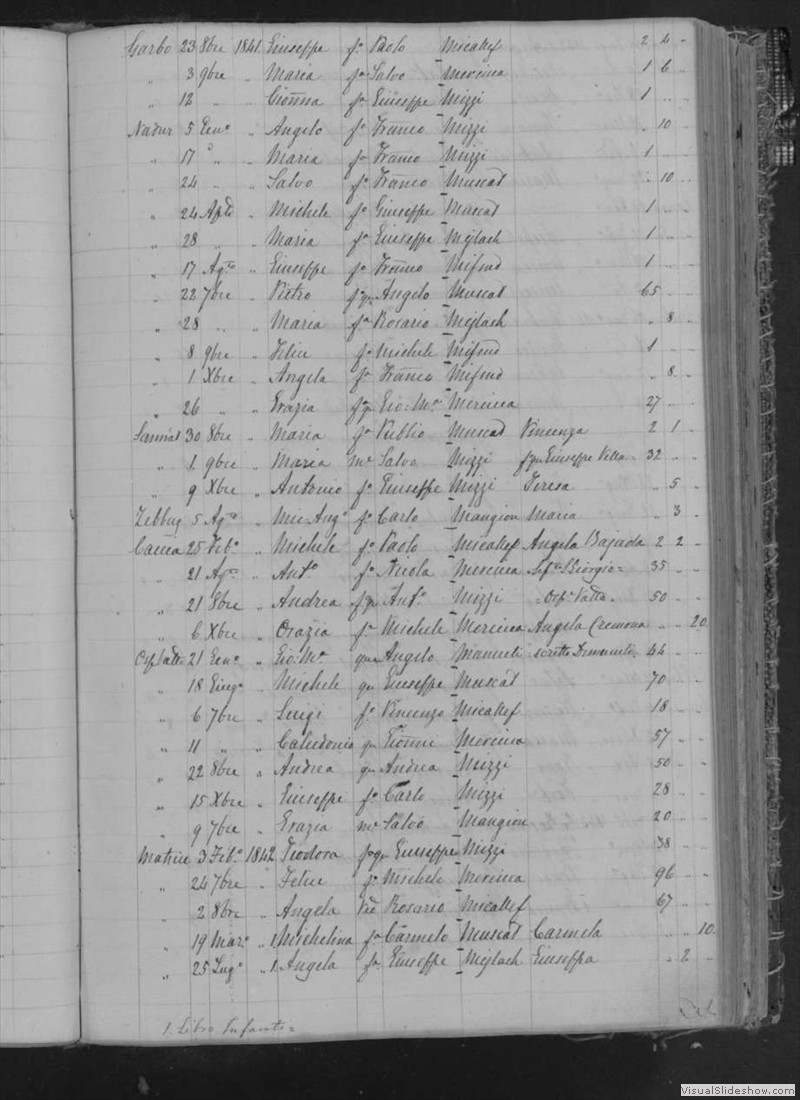 Garbo 23 8bre 1841 Giuseppe fo Paolo Micallef 2 4 "
" 3 9bre " Maria fa Salvo Mercieca 1 6
" 12 " " Giovna fa Giuseppe Mizzi 1 "
Nadur 5 Geno " Angelo fo Franco Mizzi " 10
" 17 " " Maria fa Franco Mizzi 1
" 24 " " Salvo fo Franco Muscat " 10
" 24 Aple " Michele fo Giuseppe Muscat 1
" 28 " " Maria fa Giuseppe Mejlach 1
" 17 Agto " Giuseppe fo Franco Mifsud 1
" 22 7bre " Pietro fo qm Angelo Muscat 65
" 28 " " Maria fa Rosario Mejlach " 8
" 8 9bre " Felice fo Michele Mifsud 1
" 1 Xbre " Angela fa Franco Mifsud " 8
" 26 " " Grazia fa qm Gio: Ma Mercieca 27
Sannat 30 8bre " Maria fa Publio Muscat Vincenza 2 1
" 1 9bre " Maria me Salvo Mizzi fa qm Giuseppe Vella 32
" 9 Xbre " Antonio fo Giuseppe Mizzi Teresa " 5
Zebbug 5 Agto " Mic Ango fo Carlo Mangion Maria " 3
Caccia 25 Febo " Michele fo Paolo Micallef Angela Bajada 2 2
" 21 Agto " Anto fo Nicola Mercieca 35
" 21 8bre " Andrea fo qm Anto Mizzi Osple Vatto 50
" 6 Xbre " Orazia fa Michele Mercieca Angela Cremona " " 20
Osp Vatto 21 Geno " Gio: Ma qm Angelo 44
" 18 Giugo " Michele qm Giuseppe Muscat 70
" 6 7bre " Luigi fo Vincenzo Micallef 18
" 11 " " Calcedonio qm Giovni Mercieca 57
" 22 8bre " Andrea qm Andrea Mizzi 50
" 15 Xbre " Giuseppe fo Carlo Mizzi 28
" 9 7bre " Grazia me Salvo Mangion 20
Matrice 3 Febo 1842 Teodora fa qm Giuseppe Mizzi 38
" 24 7bre " Felice fo Michele Mercieca 96
" 2 8bre " Angela Rosario Micallef 67
" 19 Maro " 1. Michelina fa Carmelo Muscat Carmela " " 10
" 25 Lugo " 1. Angela fa Giuseppe Mejlach Giuseppa " 2
1. Libro Infanti =
VisualSlideshow.com